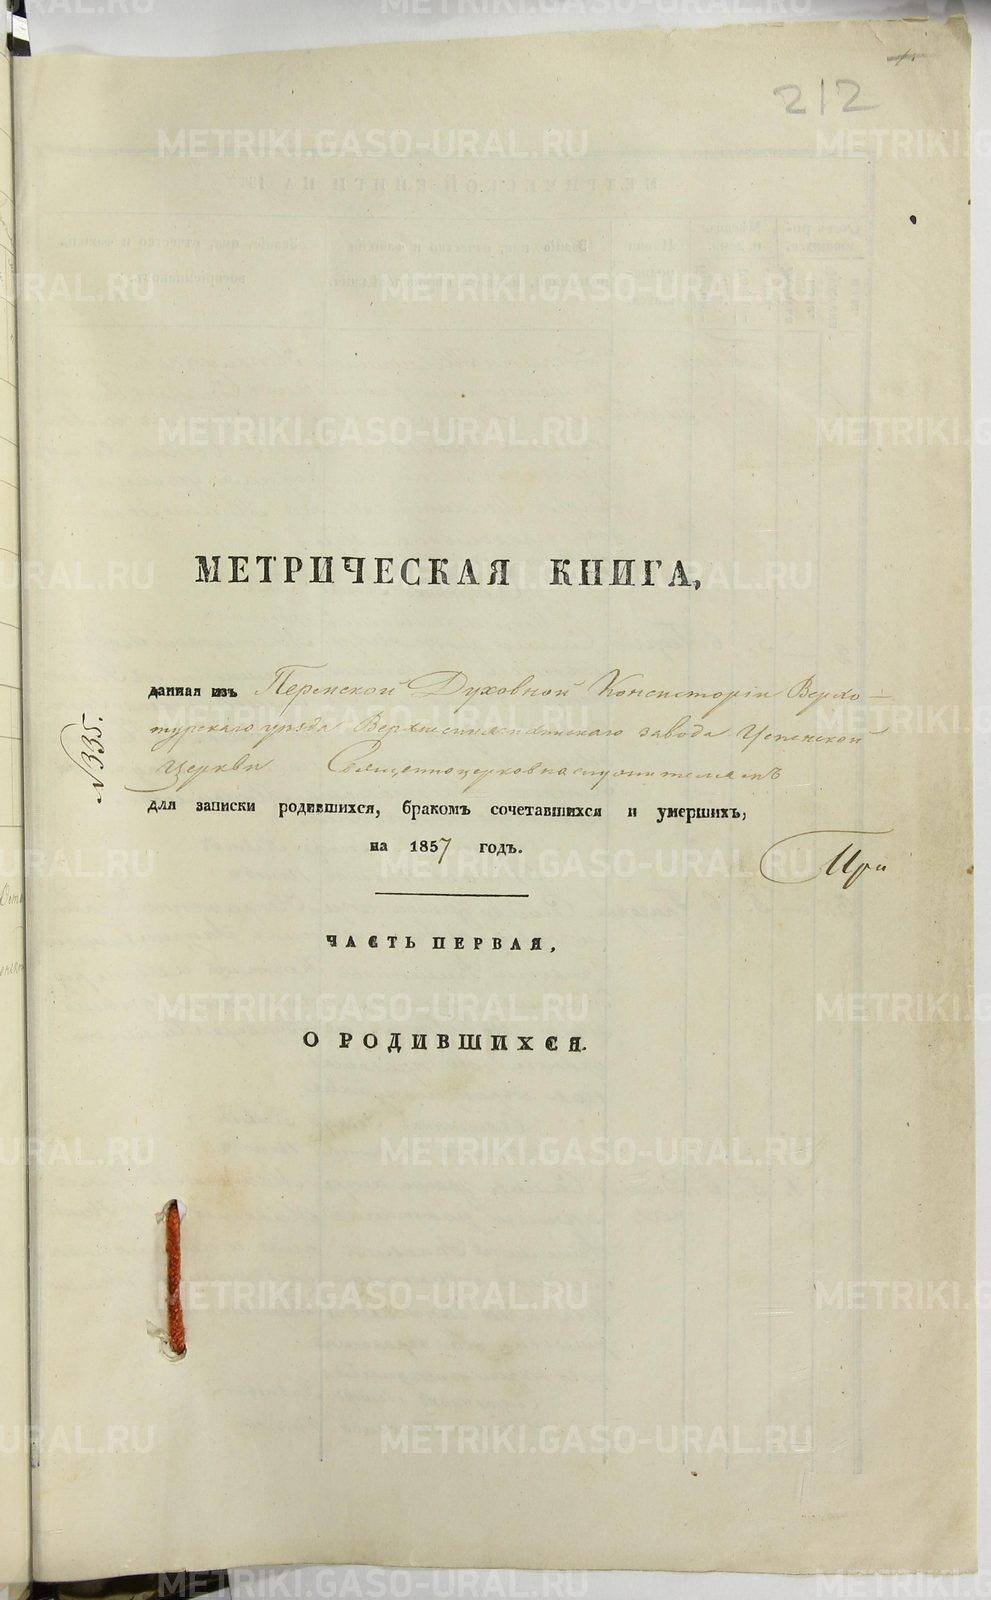 212
МЕТРИЧЕСКАЯ КНИГА,
данная изъ Пермской Духовной Консисторіи Верхо-
турскаго уѣзда Верхнесинячихинскаго завода Успенской
Церкви Священноцерковнослужителямъ
№ 335.
для записки родившихся, бракомъ сочетавшихся и умершихъ,
на 1857 годъ.
При
ЧАСТЬ ПЕРВАЯ,
О РОДИВШИХСЯ.
METRIKI.GASO-URAL.RU